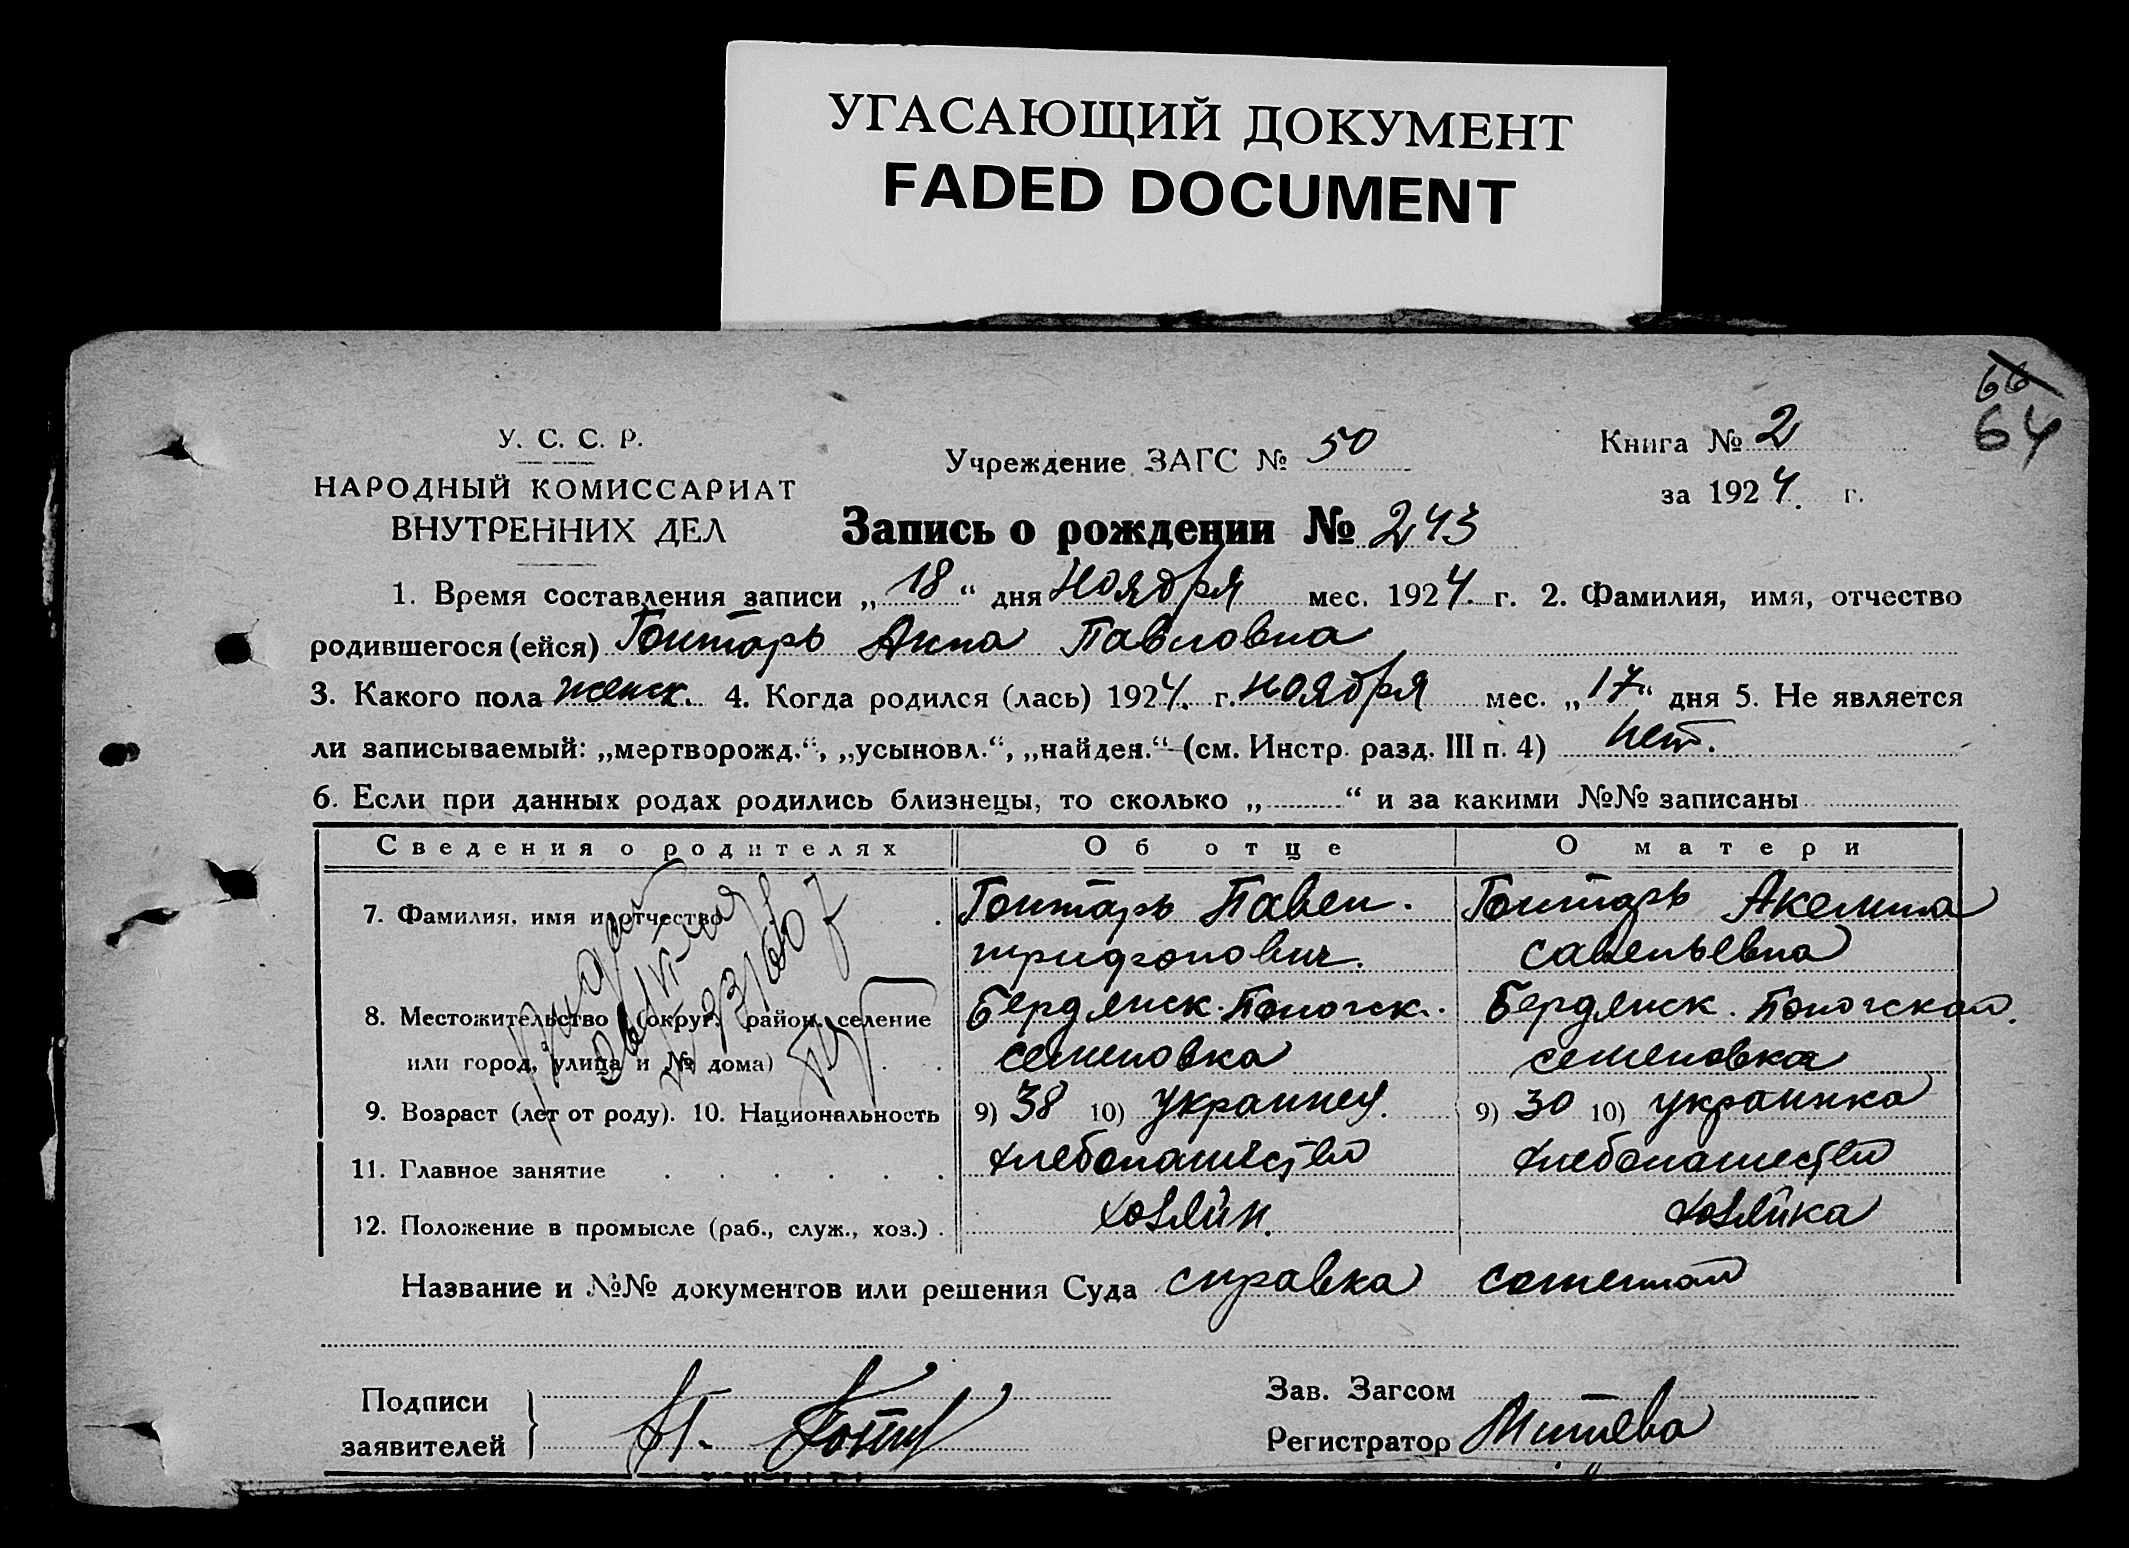 УГАСАЮЩИЙ ДОКУМЕНТ
FADED DOCUMENT
66
64
У. С. С. Р.
НАРОДНЫЙ КОМИССАРИАТ
ВНУТРЕННИХ ДЕЛ
Учреждение ЗАГС № 50
Книга № 2
за 1924 г.
Запись о рождении № 243
1. Время составления записи „18“ дня ноября мес. 1924 г. 2. Фамилия, имя, отчество
родившегося (ейся) Гонтарь Анна Павловна
3. Какого пола женск. 4. Когда родился (лась) 1924. г. ноября мес. „17“ дня 5. Не является
ли записываемый: „мертворожд.“, „усыновл.“, „найден.“ (см. Инстр. разд. III п. 4) нет.
6. Если при данных родах родились близнецы, то сколько „ “ и за какими №№ записаны
Сведения о родителях Об отце О матери
7. Фамилия, имя и отчество Гонтарь Павел. Гонтарь Акелина
трифонович. савельевна
8. Местожительство (округ, район, селение Бердянск. Пологск. Бердянск. Пологской.
или город, улица и № дома) семеновка семеновка
9. Возраст (лет от роду). 10. Национальность 9) 38 10) украинец. 9) 30 10) украинка
11. Главное занятие хлебопашество хлебопашество
12. Положение в промысле (раб., служ., хоз.) хозяин. хозяйка
Название и №№ документов или решения Суда справка
Подписи
заявителей
Зав. Загсом
Регистратор